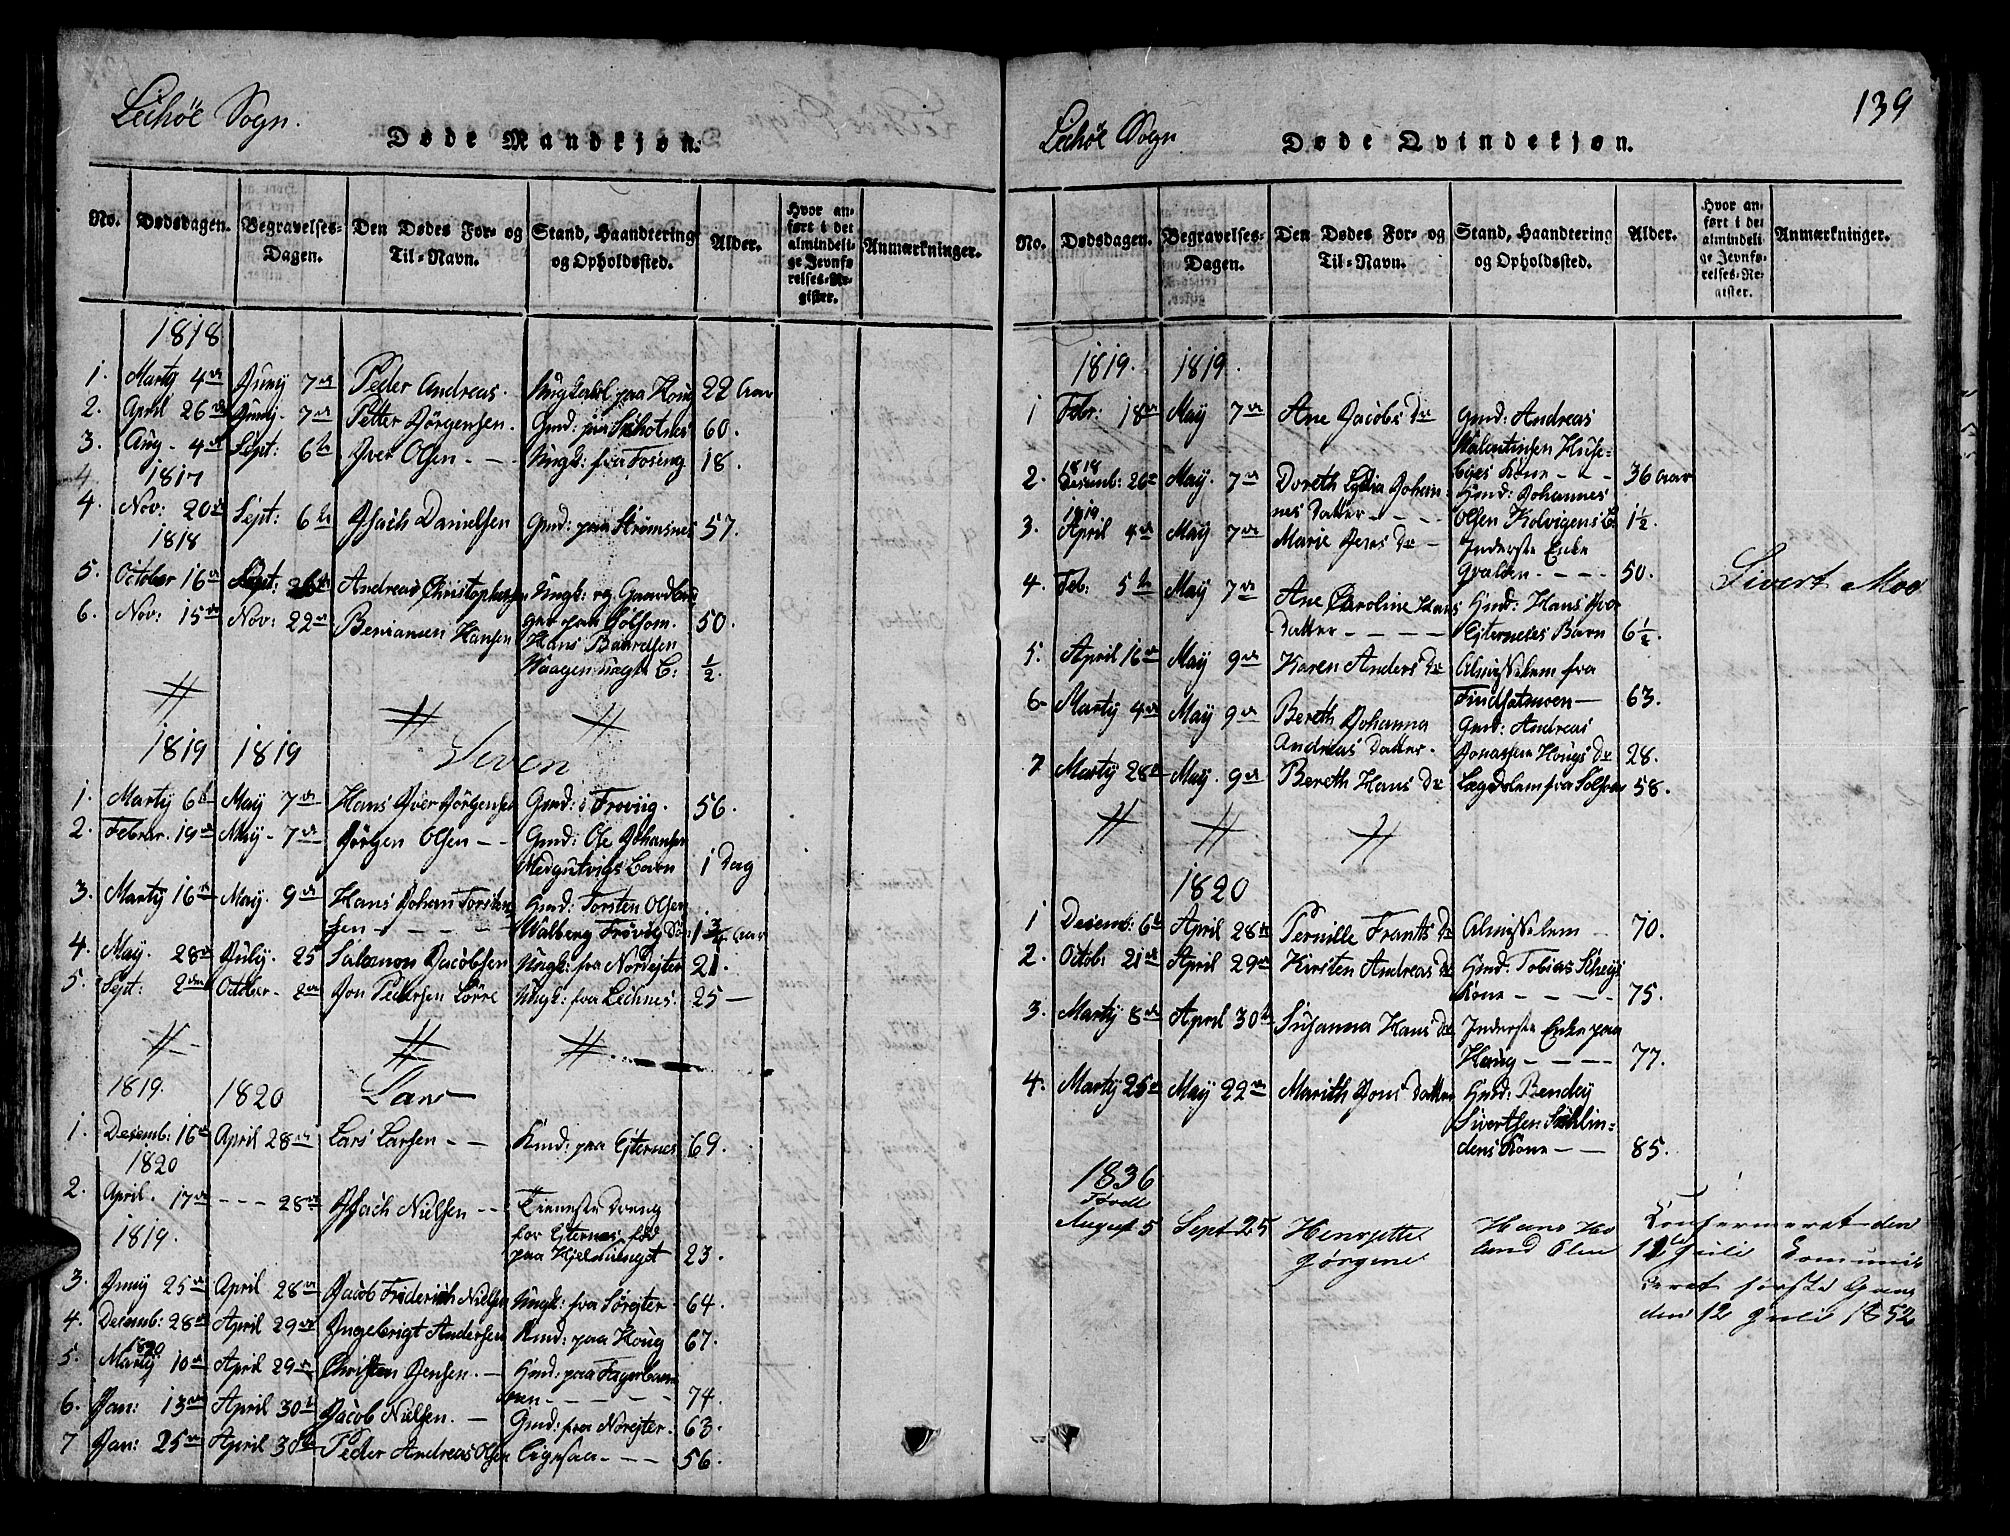 Leehöe Sogn.
Døde Mandkjøn.
No. Dødsdagen. Begravelses-Dagen. Den Dødes For- og Til-Navn. Stand, Haandtering og Opholdssted. Alder. Hvor anført i det almindelige Jevnførelses-Register. Anmærkninger.
1818
1. Martÿ 4de Junÿ 7de Peder Andreas. Ungkarl paa Houg 22 Aar
2. April 26de Junÿ. 7de Petter Jørgensen. Gmd: paa 60.
3. Aug. 4de Sept: 6te Iver Olsen - - Ungk: fra Foseng 18.
4 1817
4. Nov: 20de Sept: 6te Isach Danielsen Gmd: paa Strømsnes 57.
1818
5. October 16de Sept: Andreas Christophersen Ungk: og Gaardbru
6. Nov: 15de Nov: 22de Beniamen Hansen ger paa Sølsom. 50.
Hans Banrdsen
Waagennagts B: ½.
1819 1819
1. Martÿ 6te Maÿ 7de Hans Iver Jørgensen Gmd: i Froviig. 56.
2. Febrar. 19de Maÿ. 7de Jørgen Olsen - - Gmd: Ole Johansen
Medgutvigs Barn 1 Dag
3. Martÿ 16de Maÿ. 9de Hans Johan Torsten Gmd: Torsten Olsen
sen - - - - Walberg Frovig 1¾ Aar
4. Maÿ. 28de Julÿ. 25 Salomon Jacobsen Ungk: fra Norejter 21.
5. Sept: 2den October. 2de Jon Pedersen Lørre Ungk: fra Leehnes. 25 -
1819. 1820
1. Desemb: 16de April 28de Lars Larsen - - Kmd: paa Ejternes 69.
1820
2. April. 17de - - - 28de Isach Nielsen - - Tieneste Dreng
for Ejternes fød
1819.
paa Hjelmunget 23.
3. Junÿ 25de April 28de Jacob Friderich Nielsen Ungk: fra Sørejter. 64.
4. Desemb: 28de April 29de Ingebrigt Andersen Kmd: paa Houg 67.
1820
5. Martÿ 10de April 29de Christen Jensen. - Gmd: paa Fagerbam
men - - - - 74.
6. Jan: 13de April 30te Jacob Nielsen. - Gmd: fra Norejter. 63.
7 Jan: 25de April 30te Peder Andreas Olsen - - - 56.
139
Leehöe Sogn
Døde Qvindekjøn.
No. Dødsdagen. Begravelses-Dagen. Den Dødes For- og Til-Navn. Stand, Haandtering og Opholdssted. Alder. Hvor anført i det almindelige Jevnførelses-Register. Anmærkninger.
1819. 1819.
1 Febr: 18de Maÿ 7de Ane Jacobs Dr Gmd: Andreas
Walentinsen Huse-
byes Kone - - 36 Aar
1818
2. Desemb: 26de Maÿ. 7de Doreth Lydia Johan- Gmd: Johannes
nes Datter - - - - Olsen Kolvigens B: 1½.
1819
3. April 4de Maÿ 7de Marie Jens Dr - Inderste Enke
- - - - 50.
Sivert Moe
4. Feb: 5te Maÿ 7de Ane Caroline Hans Gmd: Hans Iver
Datter - - - - Ejterneses Barn 6½.
5. April 16de Maÿ 9de Karen Anders Dr Almisselem fra
63.
6. Martÿ 4de Maÿ 9de Bereth Johanna Gmd: Andreas
Andreas Datter. Jonassen Hougs Dr 28.
7 Martÿ 28de Maÿ. 9de Bereth Hans Dr Lægdslem fra Sølsom 58.
1820
1 Desemb: 6te April 28de Pernille Frants Dr Almisselem - 70.
2. Octob: 21de April 29de Kirsten Andreas Dr Gmd: Tobias Scheÿs
Kone - - - - 75.
3. Martÿ 8de April 30te Susanna Hans Dr Inderste Enke paa
Houg - - - - 77.
4. Martÿ 25de Maÿ 22de Marith Jons Datter Gmd: Bendey
Sivertsen Söhlin-
dens Kone - - 85.
1836
Födt
August 5 Sept 25 Henriette Hans Ho Confermeret den
Jørgine 12 Juli Comuni
ceret første Gang
den 12 Juli 1852